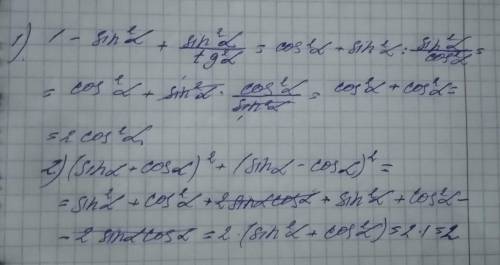 1) 1 - sin²α + sin²α/tg²α = cos²α + sin²α : sin²α/cos²α =
= cos²α + sin²α · cos²α/sin²α = cos²α + cos²α =
= 2cos²α
2) (sinα + cosα)² + (sinα - cosα)² =
= sin²α + cos²α + 2 sinα cosα + sin²α + cos²α -
- 2 sinα cosα = 2 · (sin²α + cos²α) = 2 · 1 = 2